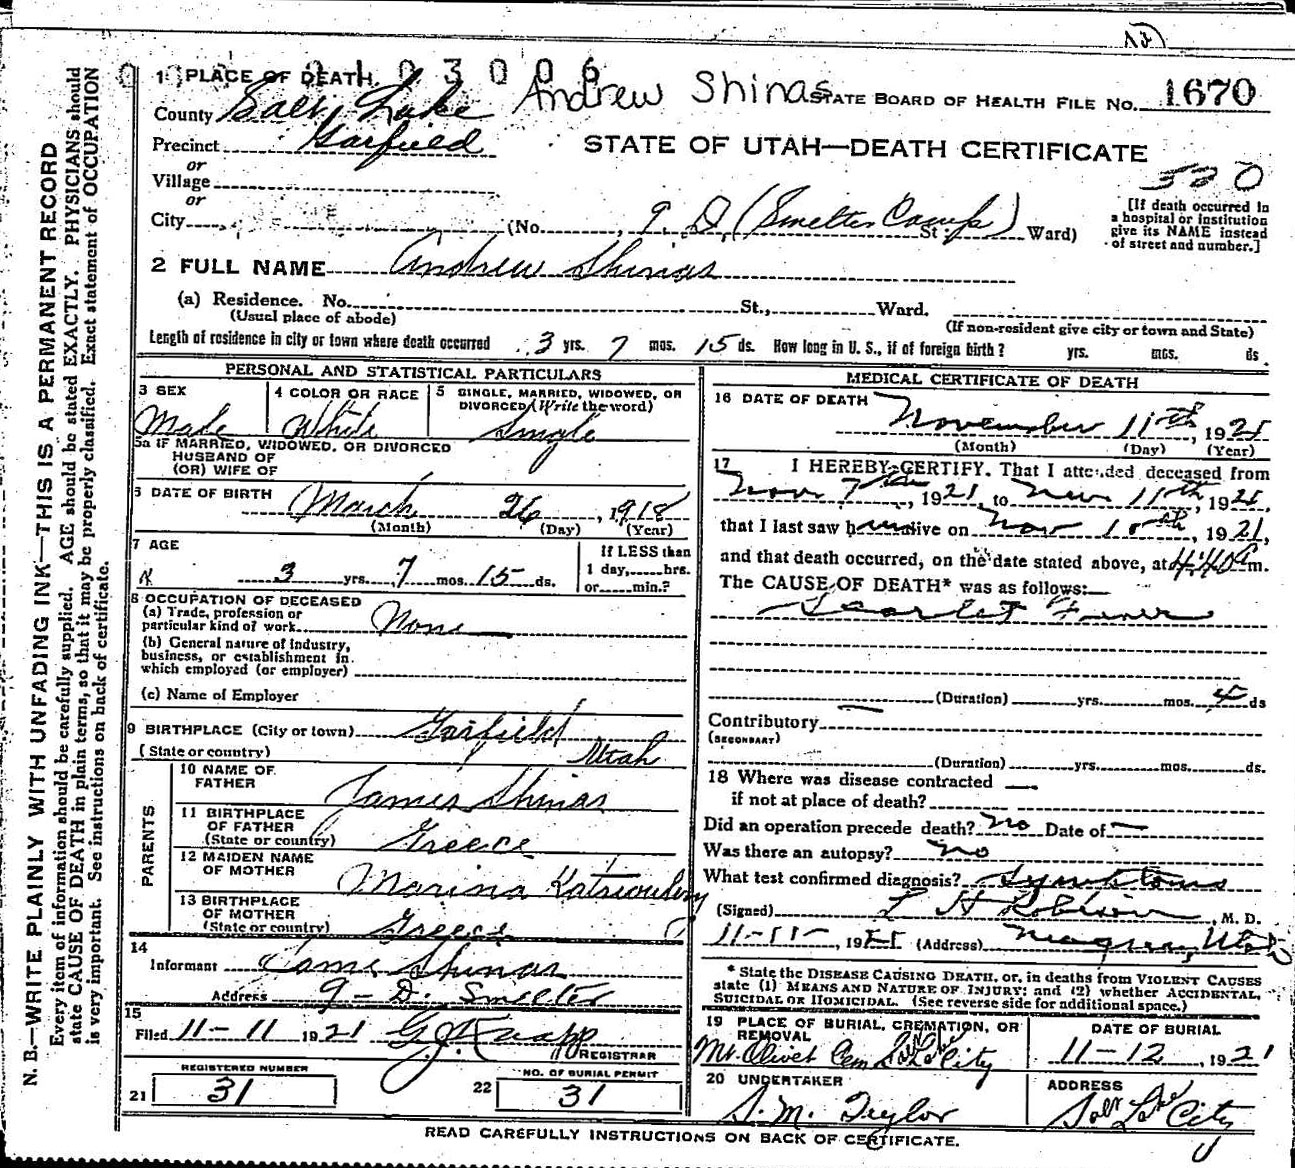 2103006
1 PLACE OF DEATH
Andrew Shinas
STATE BOARD OF HEALTH FILE No. 1670
County Salt Lake
Precinct Garfield
STATE OF UTAH—DEATH CERTIFICATE
or
Village
or
530
City (No. 9 D (Smelter Camp) St. Ward)
[If death occurred in a hospital or institution give its NAME instead of street and number.]
2 FULL NAME Andrew Shinas
(a) Residence. No. St., Ward.
(Usual place of abode) (If non-resident give city or town and State)
Length of residence in city or town where death occurred 3 yrs. 7 mos. 15 ds. How long in U. S., if of foreign birth? yrs. mos. ds.
PERSONAL AND STATISTICAL PARTICULARS
3 SEX Male
4 COLOR OR RACE White
5 SINGLE, MARRIED, WIDOWED, OR DIVORCED (Write the word) Single
5a IF MARRIED, WIDOWED, OR DIVORCED
HUSBAND OF
(OR) WIFE OF
6 DATE OF BIRTH March 26, 1918
(Month) (Day) (Year)
7 AGE 3 yrs. 7 mos. 15 ds.
If LESS than
1 day, hrs.
or min.?
8 OCCUPATION OF DECEASED
(a) Trade, profession or
particular kind of work None
(b) General nature of industry,
business, or establishment in
which employed (or employer)
(c) Name of Employer
9 BIRTHPLACE (City or town) Garfield
(State or country) Utah
PARENTS
10 NAME OF
FATHER James Shinas
11 BIRTHPLACE
OF FATHER
(State or country) Greece
12 MAIDEN NAME
OF MOTHER Marina
13 BIRTHPLACE
OF MOTHER
(State or country) Greece
14
Informant Shinas
Address 9-D. Smelter
15
Filed 11-11 1921 G. J. Knapp
REGISTRAR
REGISTERED NUMBER
21 31
NO. OF BURIAL PERMIT
22 31
MEDICAL CERTIFICATE OF DEATH
16 DATE OF DEATH
November 11th, 1921
(Month) (Day) (Year)
17 I HEREBY CERTIFY. That I attended deceased from
Nov 7th, 1921 to Nov 11th, 1921,
that I last saw him alive on Nov 10th, 1921,
and that death occurred, on the date stated above, at 4:40 a m.
The CAUSE OF DEATH* was as follows:—
Scarlet Fever
(Duration) yrs. mos. 4 ds
Contributory
(SECONDARY)
(Duration) yrs. mos. ds.
18 Where was disease contracted —
if not at place of death?
Did an operation precede death? No Date of —
Was there an autopsy? No
What test confirmed diagnosis? Symptoms
(Signed) L H Robinson, M. D.
11-11-, 1921 (Address) Magna, Utah
* State the DISEASE CAUSING DEATH, or, in deaths from VIOLENT CAUSES
state (1) MEANS AND NATURE OF INJURY; and (2) whether ACCIDENTAL,
SUICIDAL OR HOMICIDAL. (See reverse side for additional space.)
19 PLACE OF BURIAL, CREMATION, OR
REMOVAL
Mt. Olivet Cem Salt Lake City
DATE OF BURIAL
11-12, 1921
20 UNDERTAKER
S. M. Taylor
ADDRESS
Salt Lake City
READ CAREFULLY INSTRUCTIONS ON BACK OF CERTIFICATE.
N. B.—WRITE PLAINLY WITH UNFADING INK—THIS IS A PERMANENT RECORD
Every item of information should be carefully supplied. AGE should be stated EXACTLY. PHYSICIANS should
state CAUSE OF DEATH in plain terms, so that it may be properly classified. Exact statement of OCCUPATION
is very important. See instructions on back of certificate.